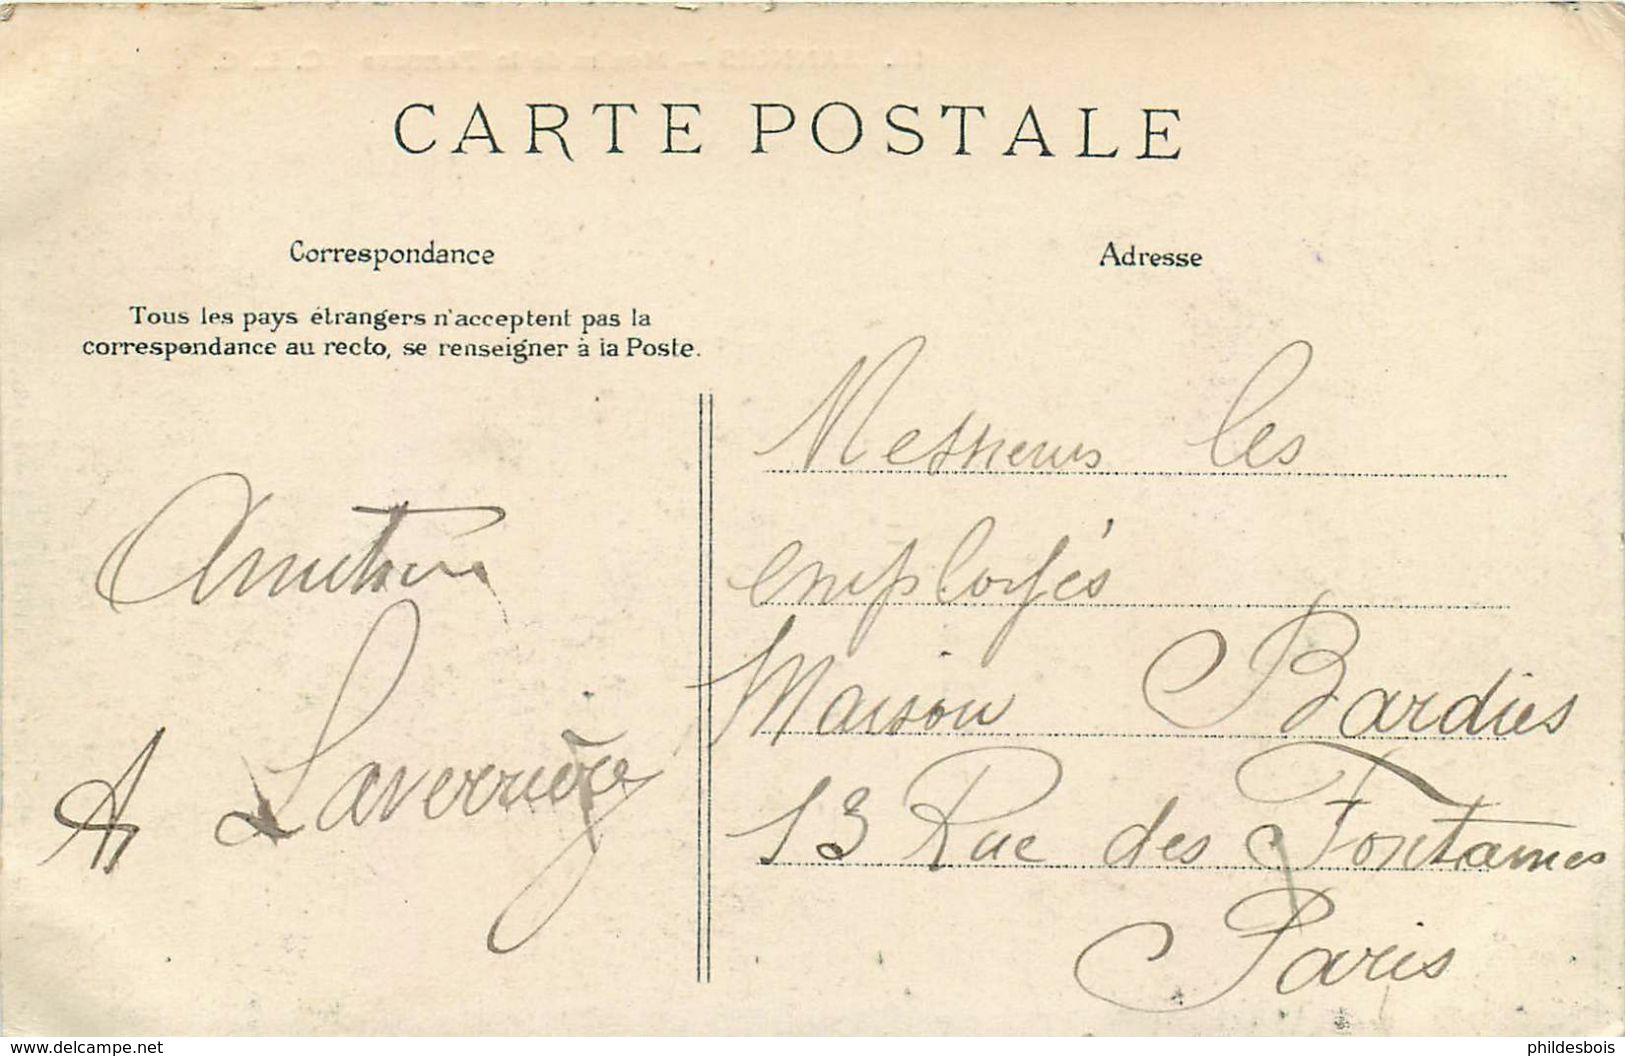 CARTE POSTALE
Correspondance
Tous les pays étrangers n'acceptent pas la
correspondance au recto, se renseigner à la Poste.
A Laverrière
Adresse
Messieurs les
employés
Maison Bardies
13 Rue des Fontaines
Paris
www.delcampe.net
phildesbois